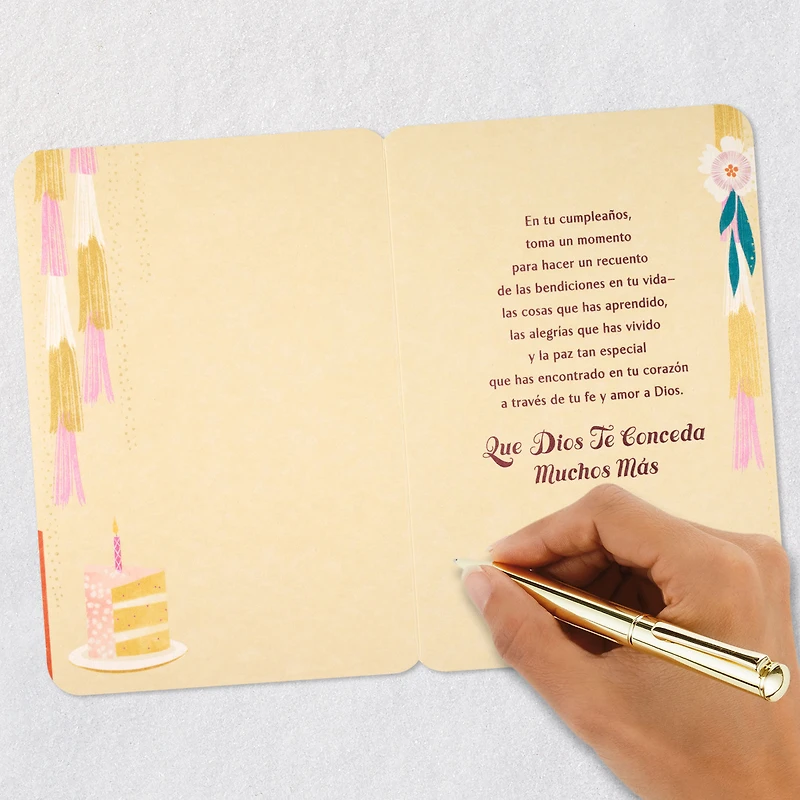 En tu cumpleaños,
toma un momento
para hacer un recuento
de las bendiciones en tu vida—
las cosas que has aprendido,
las alegrías que has vivido
y la paz tan especial
que has encontrado en tu corazón
a través de tu fe y amor a Dios.
Que Dios Te Conceda
Muchos Más